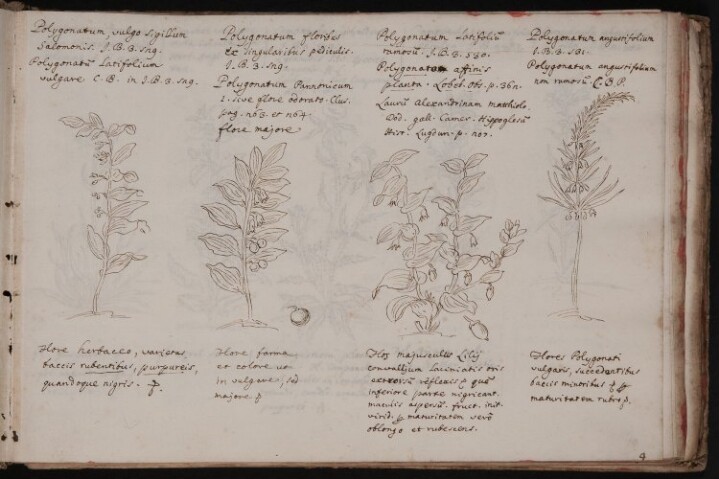 Polygonatum, vulgo Sigillum
Salomonis. J.B.3.529.
Polygonatũ Latifolium
vulgare C.B. in J.B.3.529.
Polygonatum floribus
ex singularibus
J.B.3.529.
Polygonatum Pannonicum
1. sive flore odorato. Clus.
pag. 263. et 264.
flore majore
Polygonatum Latifoliũ
ramosũ. J.B.3.530.
Polygonatum affinis
planta. Lobel. Obs. p.
Laurũ Alexandrinam
Dod. gall. Camer. Hippoglossũ
Hist. Lugdun. p.
Polygonatum angustifolium
J.B.3.531.
Polygonatum angustifolium
non ramosũ C.B.P.
Flore herbaceo, varietas
baccis rubentibus, purpureis,
quandoque nigris.
Flore forma
et colore ut
in vulgare, sed
majore
Flos majusculus Lilij
convallium laciniatis oris
extrorsũ reflexis
inferiore parte nigricant.
maculis aspersũ. fruct. init.
virid. maturitatem verò
oblongo et rubescens.
Flores Polygonati
vulgaris, succedentibus
baccis
maturitatem rubro
4